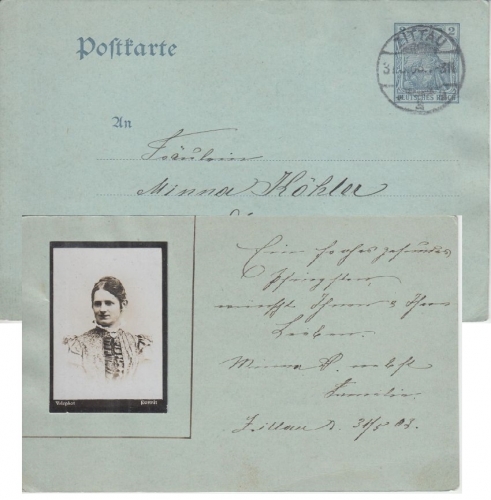 Postkarte
2
ZITTAU
DEUTSCHES REICH
An
Fräulein
Minna Köhler
Ein frohes gesundes
Pfingsten,
wünscht Ihnen &
Lieben.
Minna nebst
Familie.
Zittau d. 30/5 03.